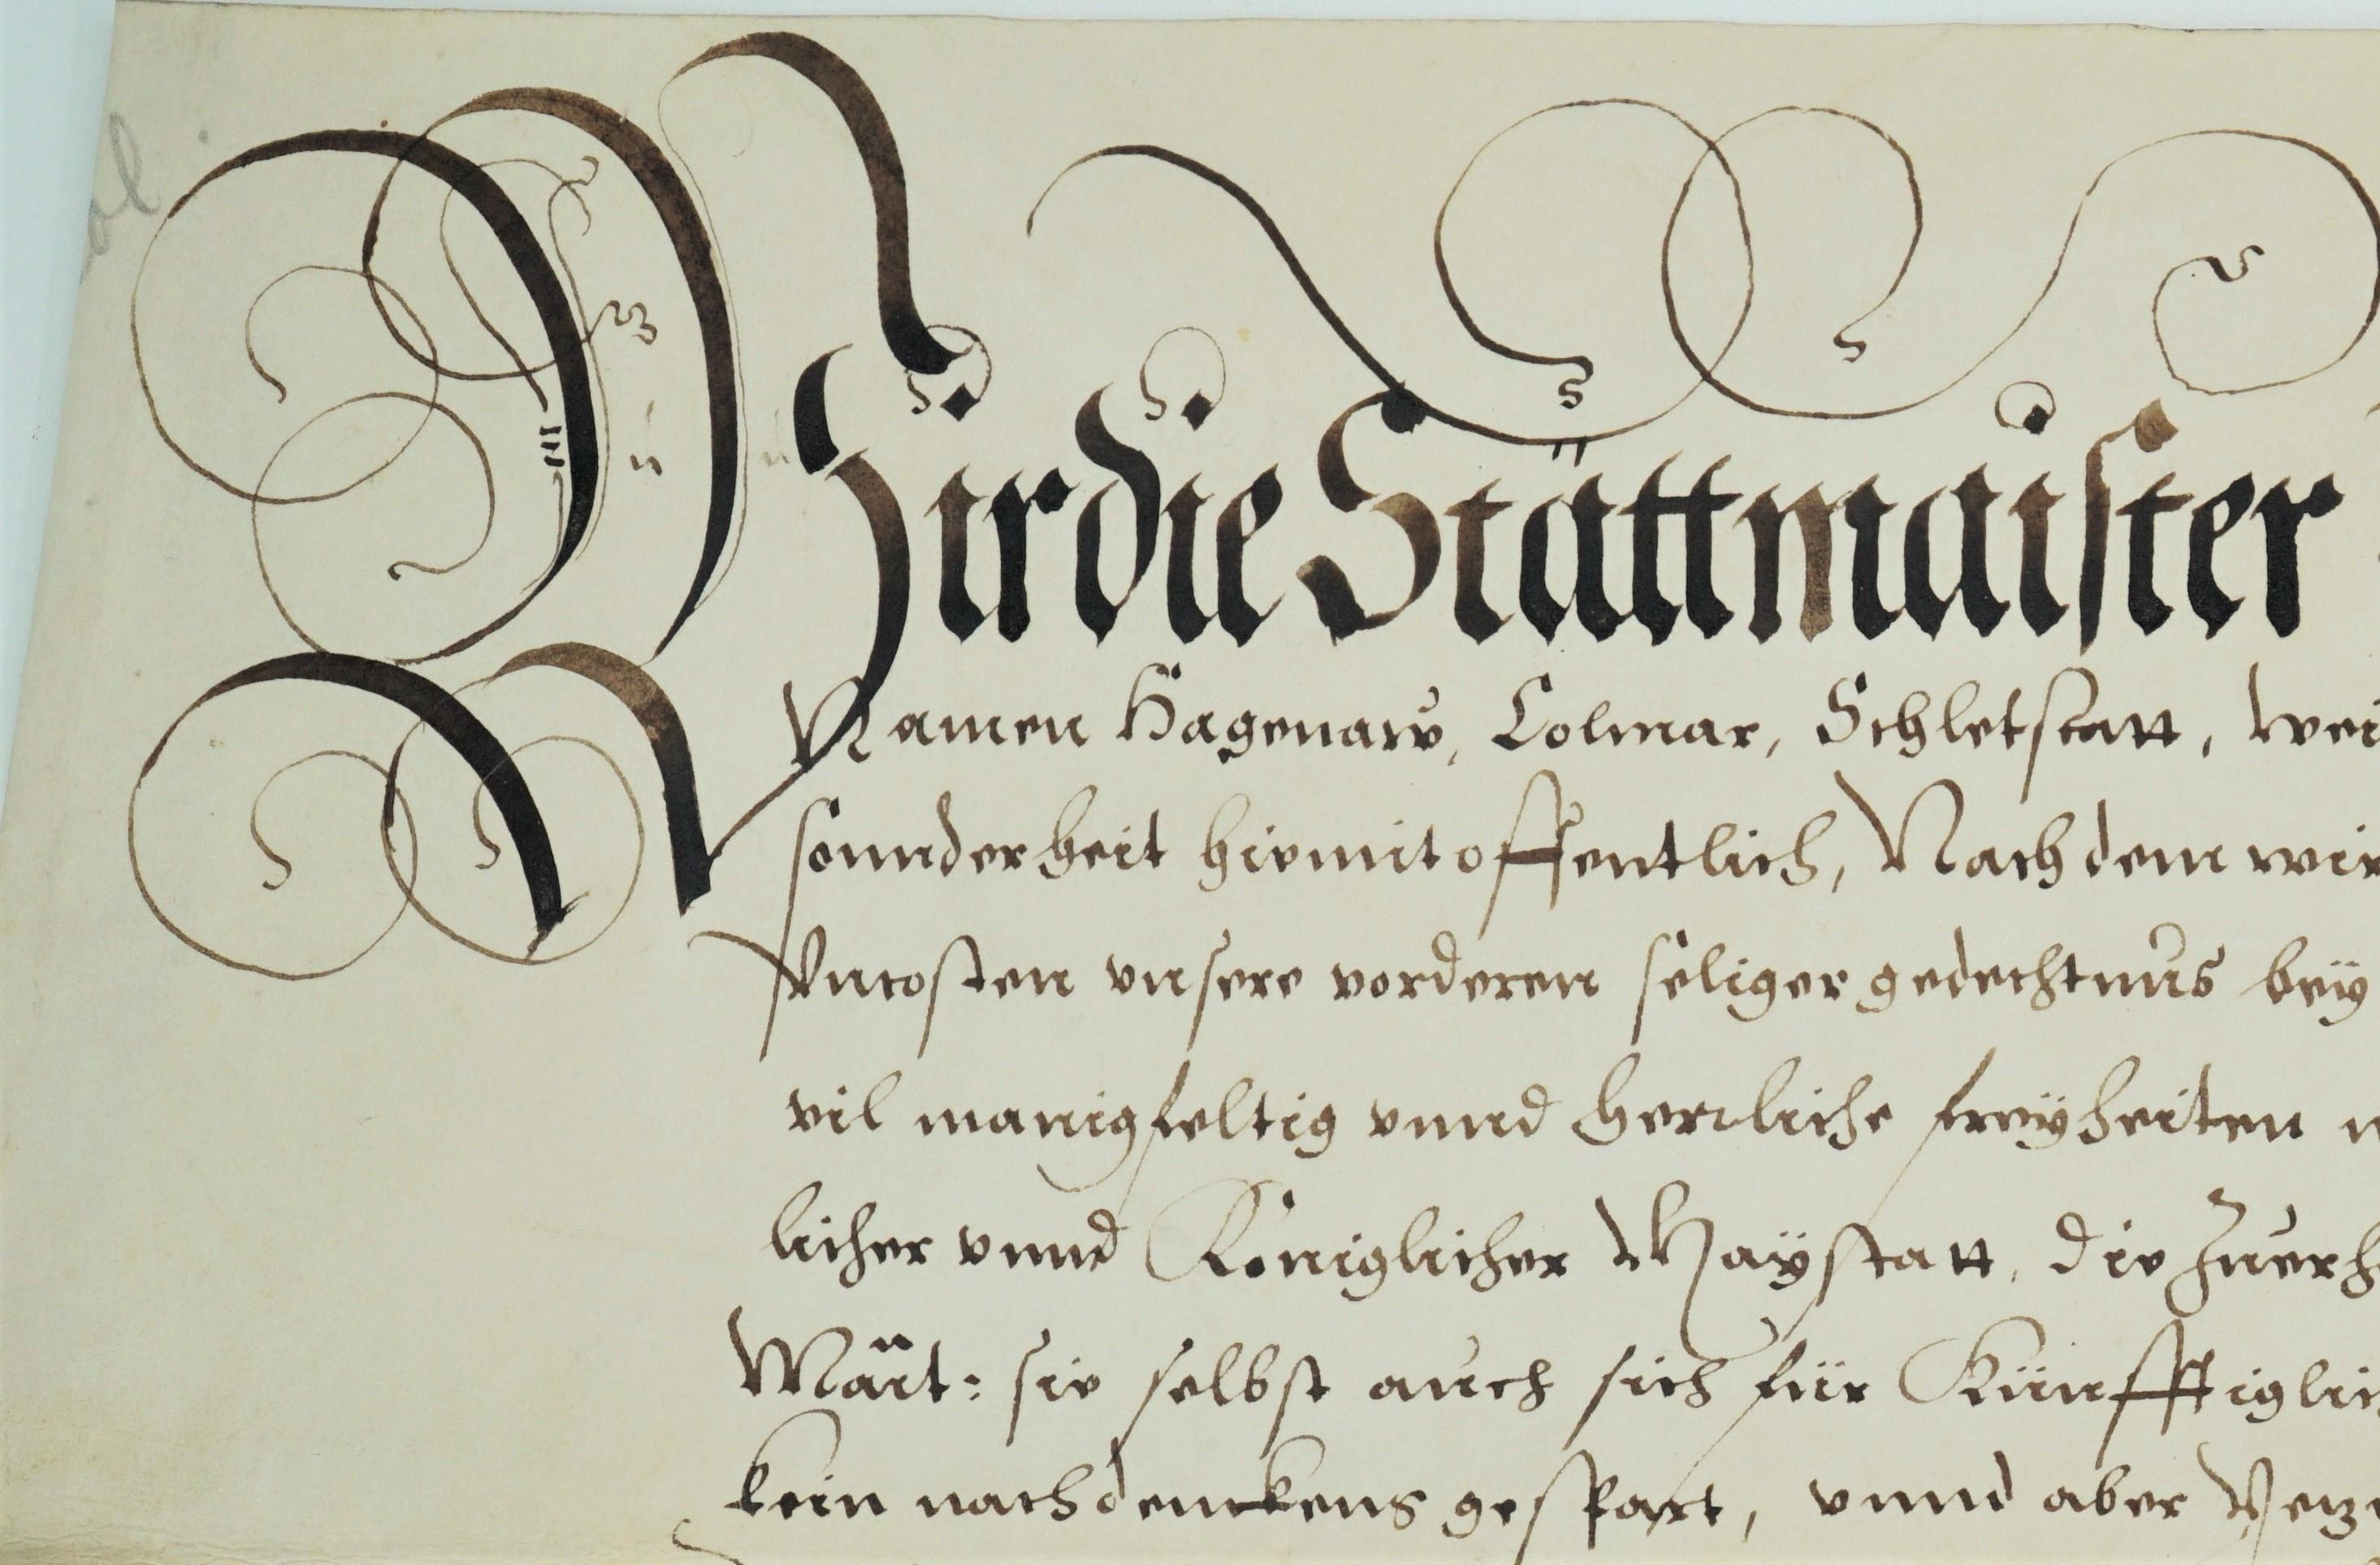 Wir die Stättmaister
Namen Hagenaw, Colmar, Schletstatt, Wei
sonnderheit hiemit offentlich, Nach dem wir
Vncosten vnsere vorderen seliger gedechtnus bey
vil manigfeltig vnnd herrliche freyheiten
licher vnnd Königlicher Maystatt, die
Mäit: sie selbst auch sich für Künfftiglich
kein nachdenckens gespart, vnnd aber